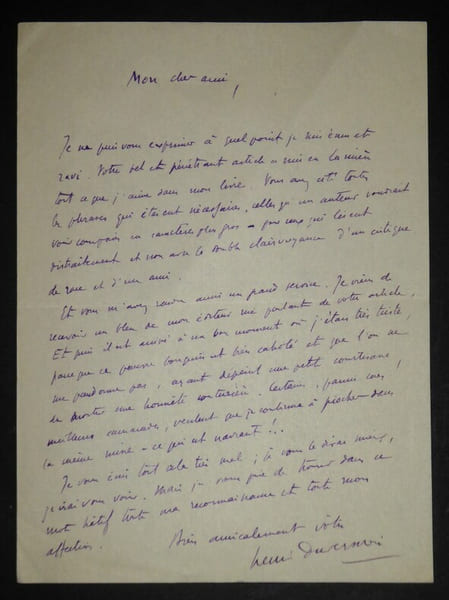 Mon cher ami,
Je ne puis vous exprimer à quel point je suis ému et
ravi. Votre bel et pénétrant article a mis en lumière
tout ce que j'aime dans mon livre. Vous avez cité toutes
les phrases qui étaient nécessaires, celles qu'un auteur voudrait
voir composer en caractères plus gros – pour ceux qui lisent
distraitement et non avec la double clairvoyance d'un critique
de race et d'un ami.
Et vous m'avez rendu aussi un grand service. Je viens de
recevoir un bleu de mon éditeur me parlant de votre article.
Et puis il est arrivé à un bon moment où j'étais très triste,
parce que ce pauvre bouquin est bien cahoté et que l'on ne
me pardonne pas, ayant dépeint une petite courtisane
de montrer une honnête couturière. Certains, parmi nos
meilleurs camarades, veulent que je continue à piocher dans
la même mine – ce qui est navrant !..
Je vous écris tout cela très mal ; je vous le dirai mieux,
j'irai vous voir. Mais je vous prie de trouver dans ce
mot hâtif toute ma reconnaissance et toute mon
affection.
Bien amicalement votre
Henri Duvernois